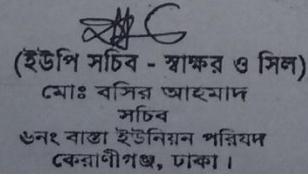 (ইউপি সচিব - স্বাক্ষর ও সিল)
মোঃ বসির আহমাদ
সচিব
৬নং বাস্তা ইউনিয়ন পরিষদ
কেরাণীগঞ্জ, ঢাকা।